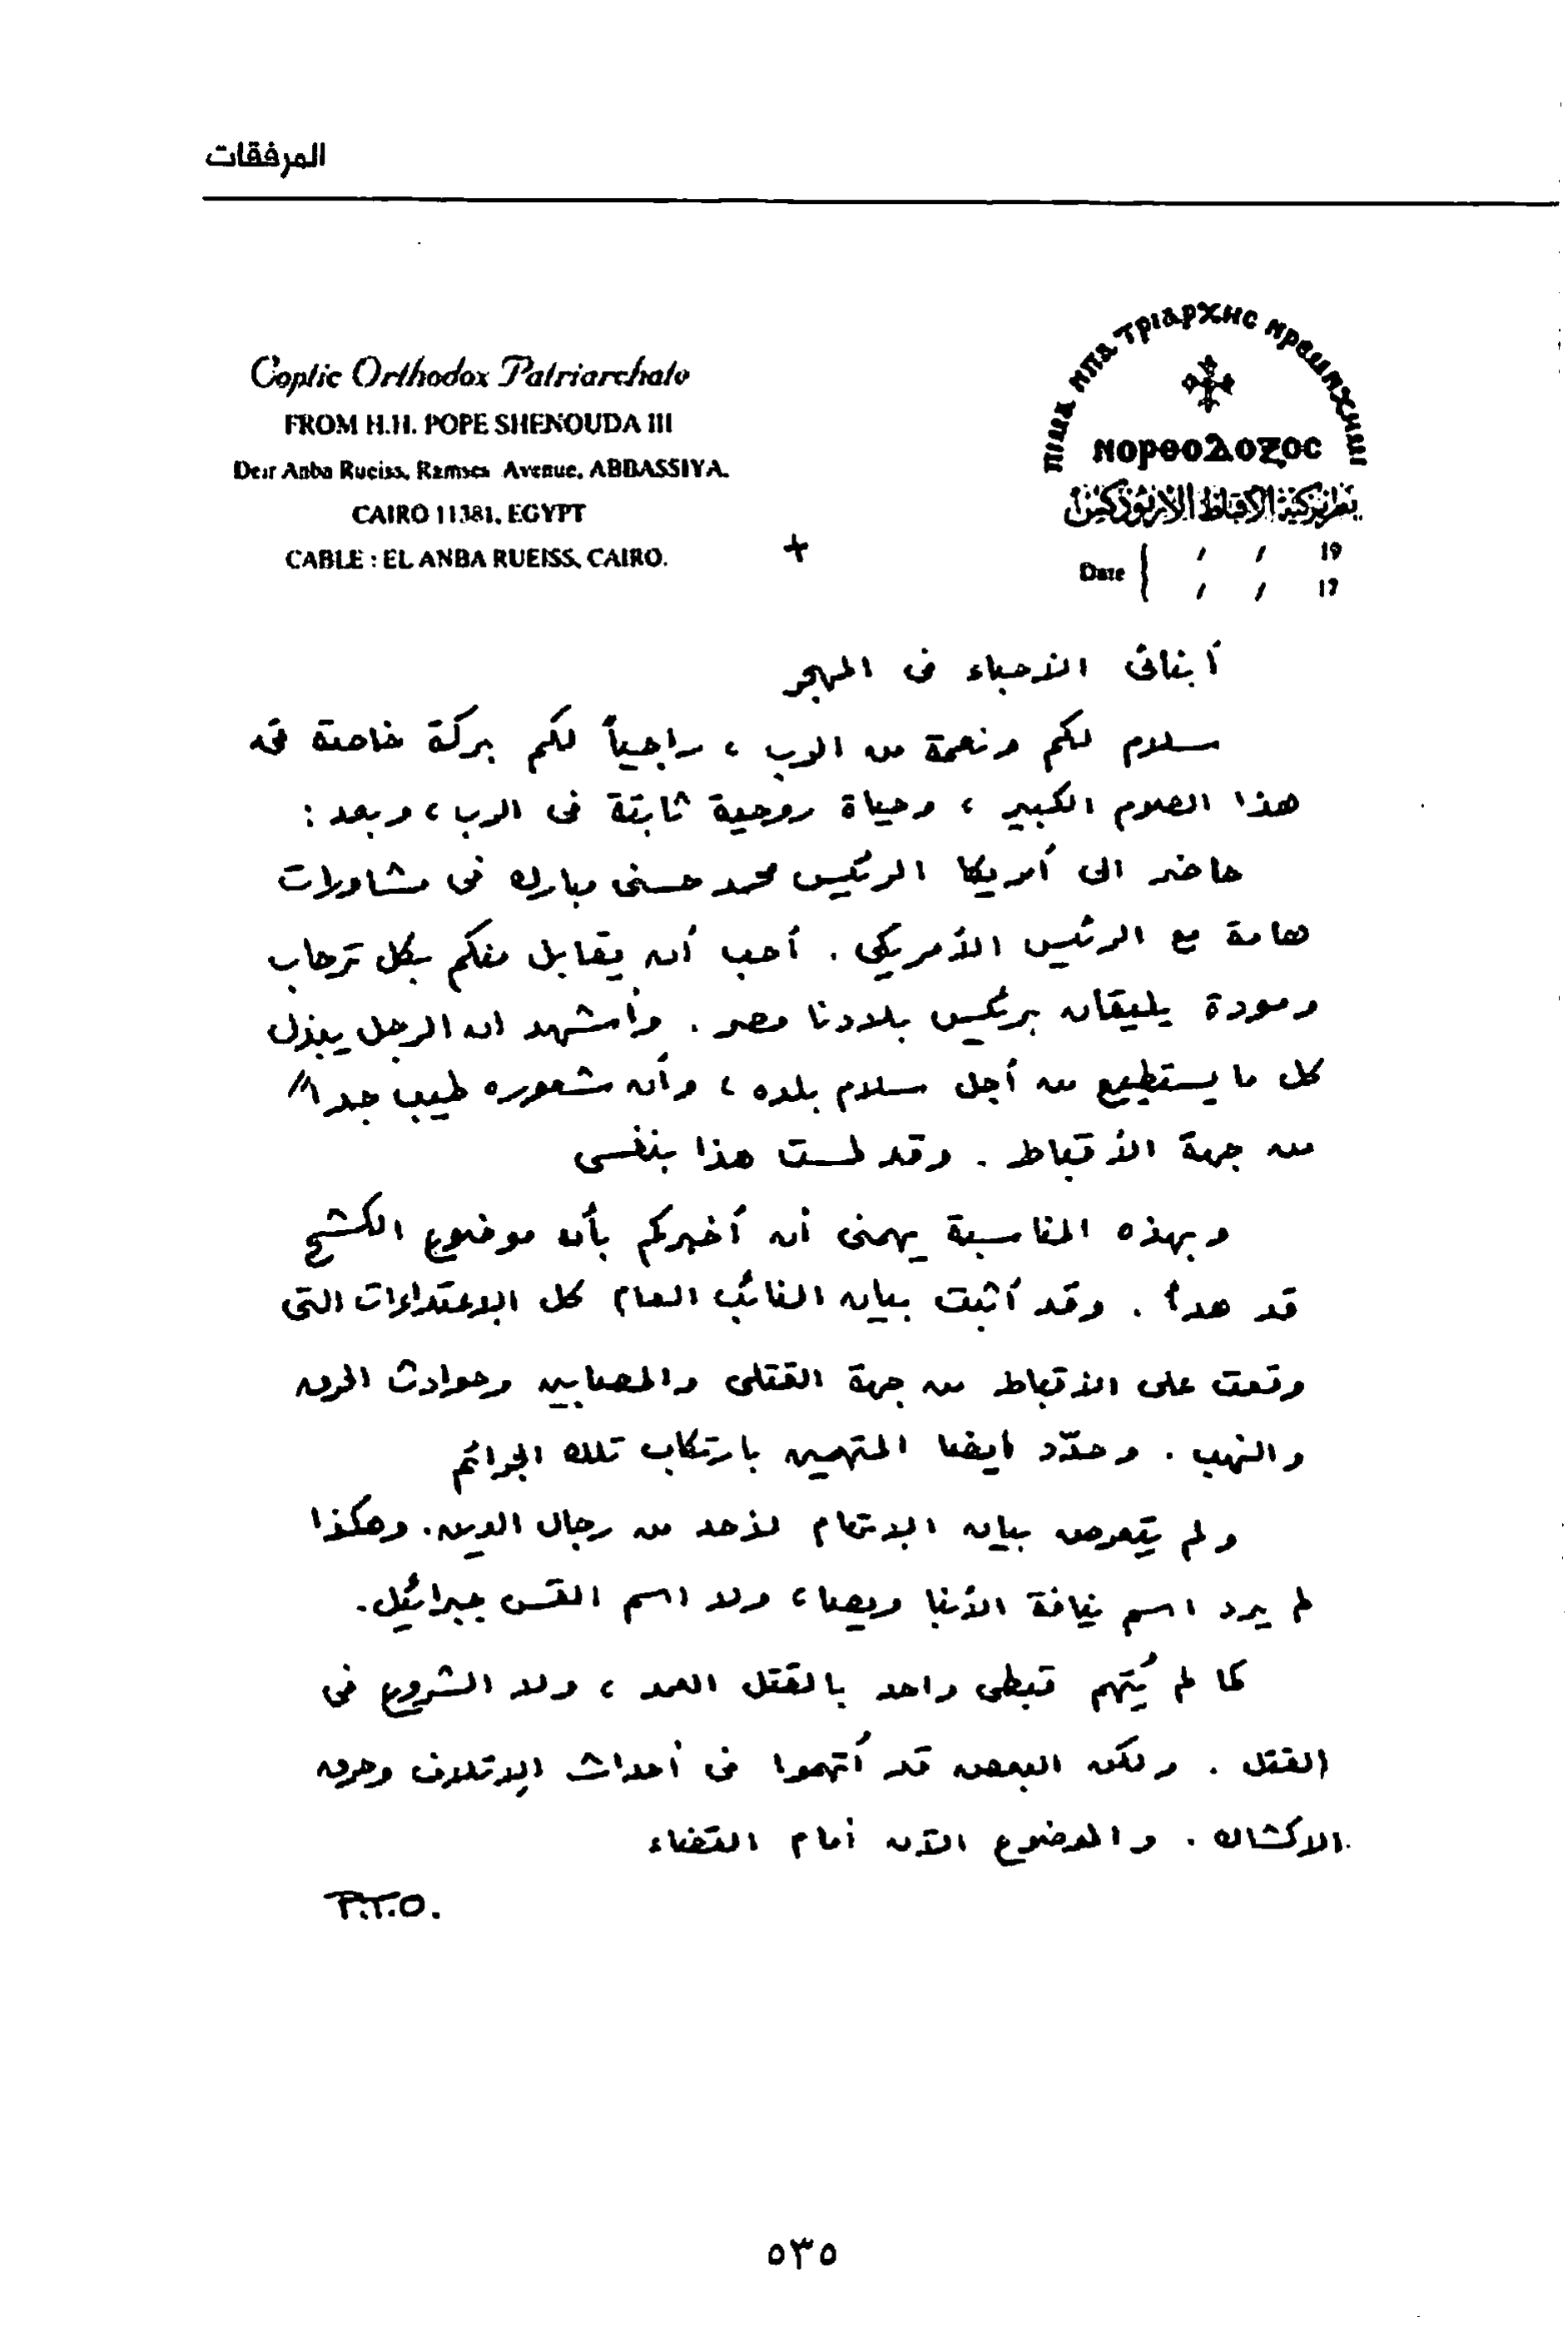 المرفقات
Coptic Orthodox Patriarchate
FROM H.H. POPE SHENOUDA III
Deir Anba Rueiss, Ramses Avenue, ABBASSIYA.
CAIRO 11381, EGYPT
CABLE : EL ANBA RUEISS, CAIRO.
ⲚⲞⲢⲐⲞⲆⲞⲜⲞⲤ
بطريركية الأقباط الأرثوذكس
Date / / 19
/ / 17
+
أبنائى الأحباء فى المهجر
سلام لكم ونعمة من الرب ، راجياً لكم بركة خاصة فى
هذا الصوم الكبير ، وحياة روحية ثابتة فى الرب ، وبعد :
حاضر الى أمريكا الرئيس محمد حسنى مبارك فى مشاورات
هامة مع الرئيس الأمريكى . أحب أن يقابل منكم بكل ترحاب
ومودة يليقان برئيس بلادنا مصر . وأشهد ان الرجل يبذل
كل ما يستطيع من أجل سلام بلده ، وأن شعوره طيب جداً
من جهة الأقباط . وقد لمست هذا بنفسى
وبهذه المناسبة يهمنى أن أخبركم بأن موضوع الكشح
قد هدأ . وقد أثبت بيان النائب العام كل الإعتداءات التى
وقعت على الأقباط من جهة القتلى والمصابين وحوادث الحرق
والنهب . وحدّد أيضا المتهمين بارتكاب تلك الجرائم
ولم يتعرض بيان الإتهام لأحد من رجال الدين . وهكذا
لم يرد اسم نيافة الأنبا ويصا ، ولا اسم القس جبرائيل .
كما لم يُتهم قبطى واحد بالقتل العمد ، ولا الشروع فى
القتل . ولكن البعض قد أُتهموا فى أحداث الإتلاف وحرق
الأكشاك . والموضوع الآن أمام القضاء
P.T.O.
٥٣٥